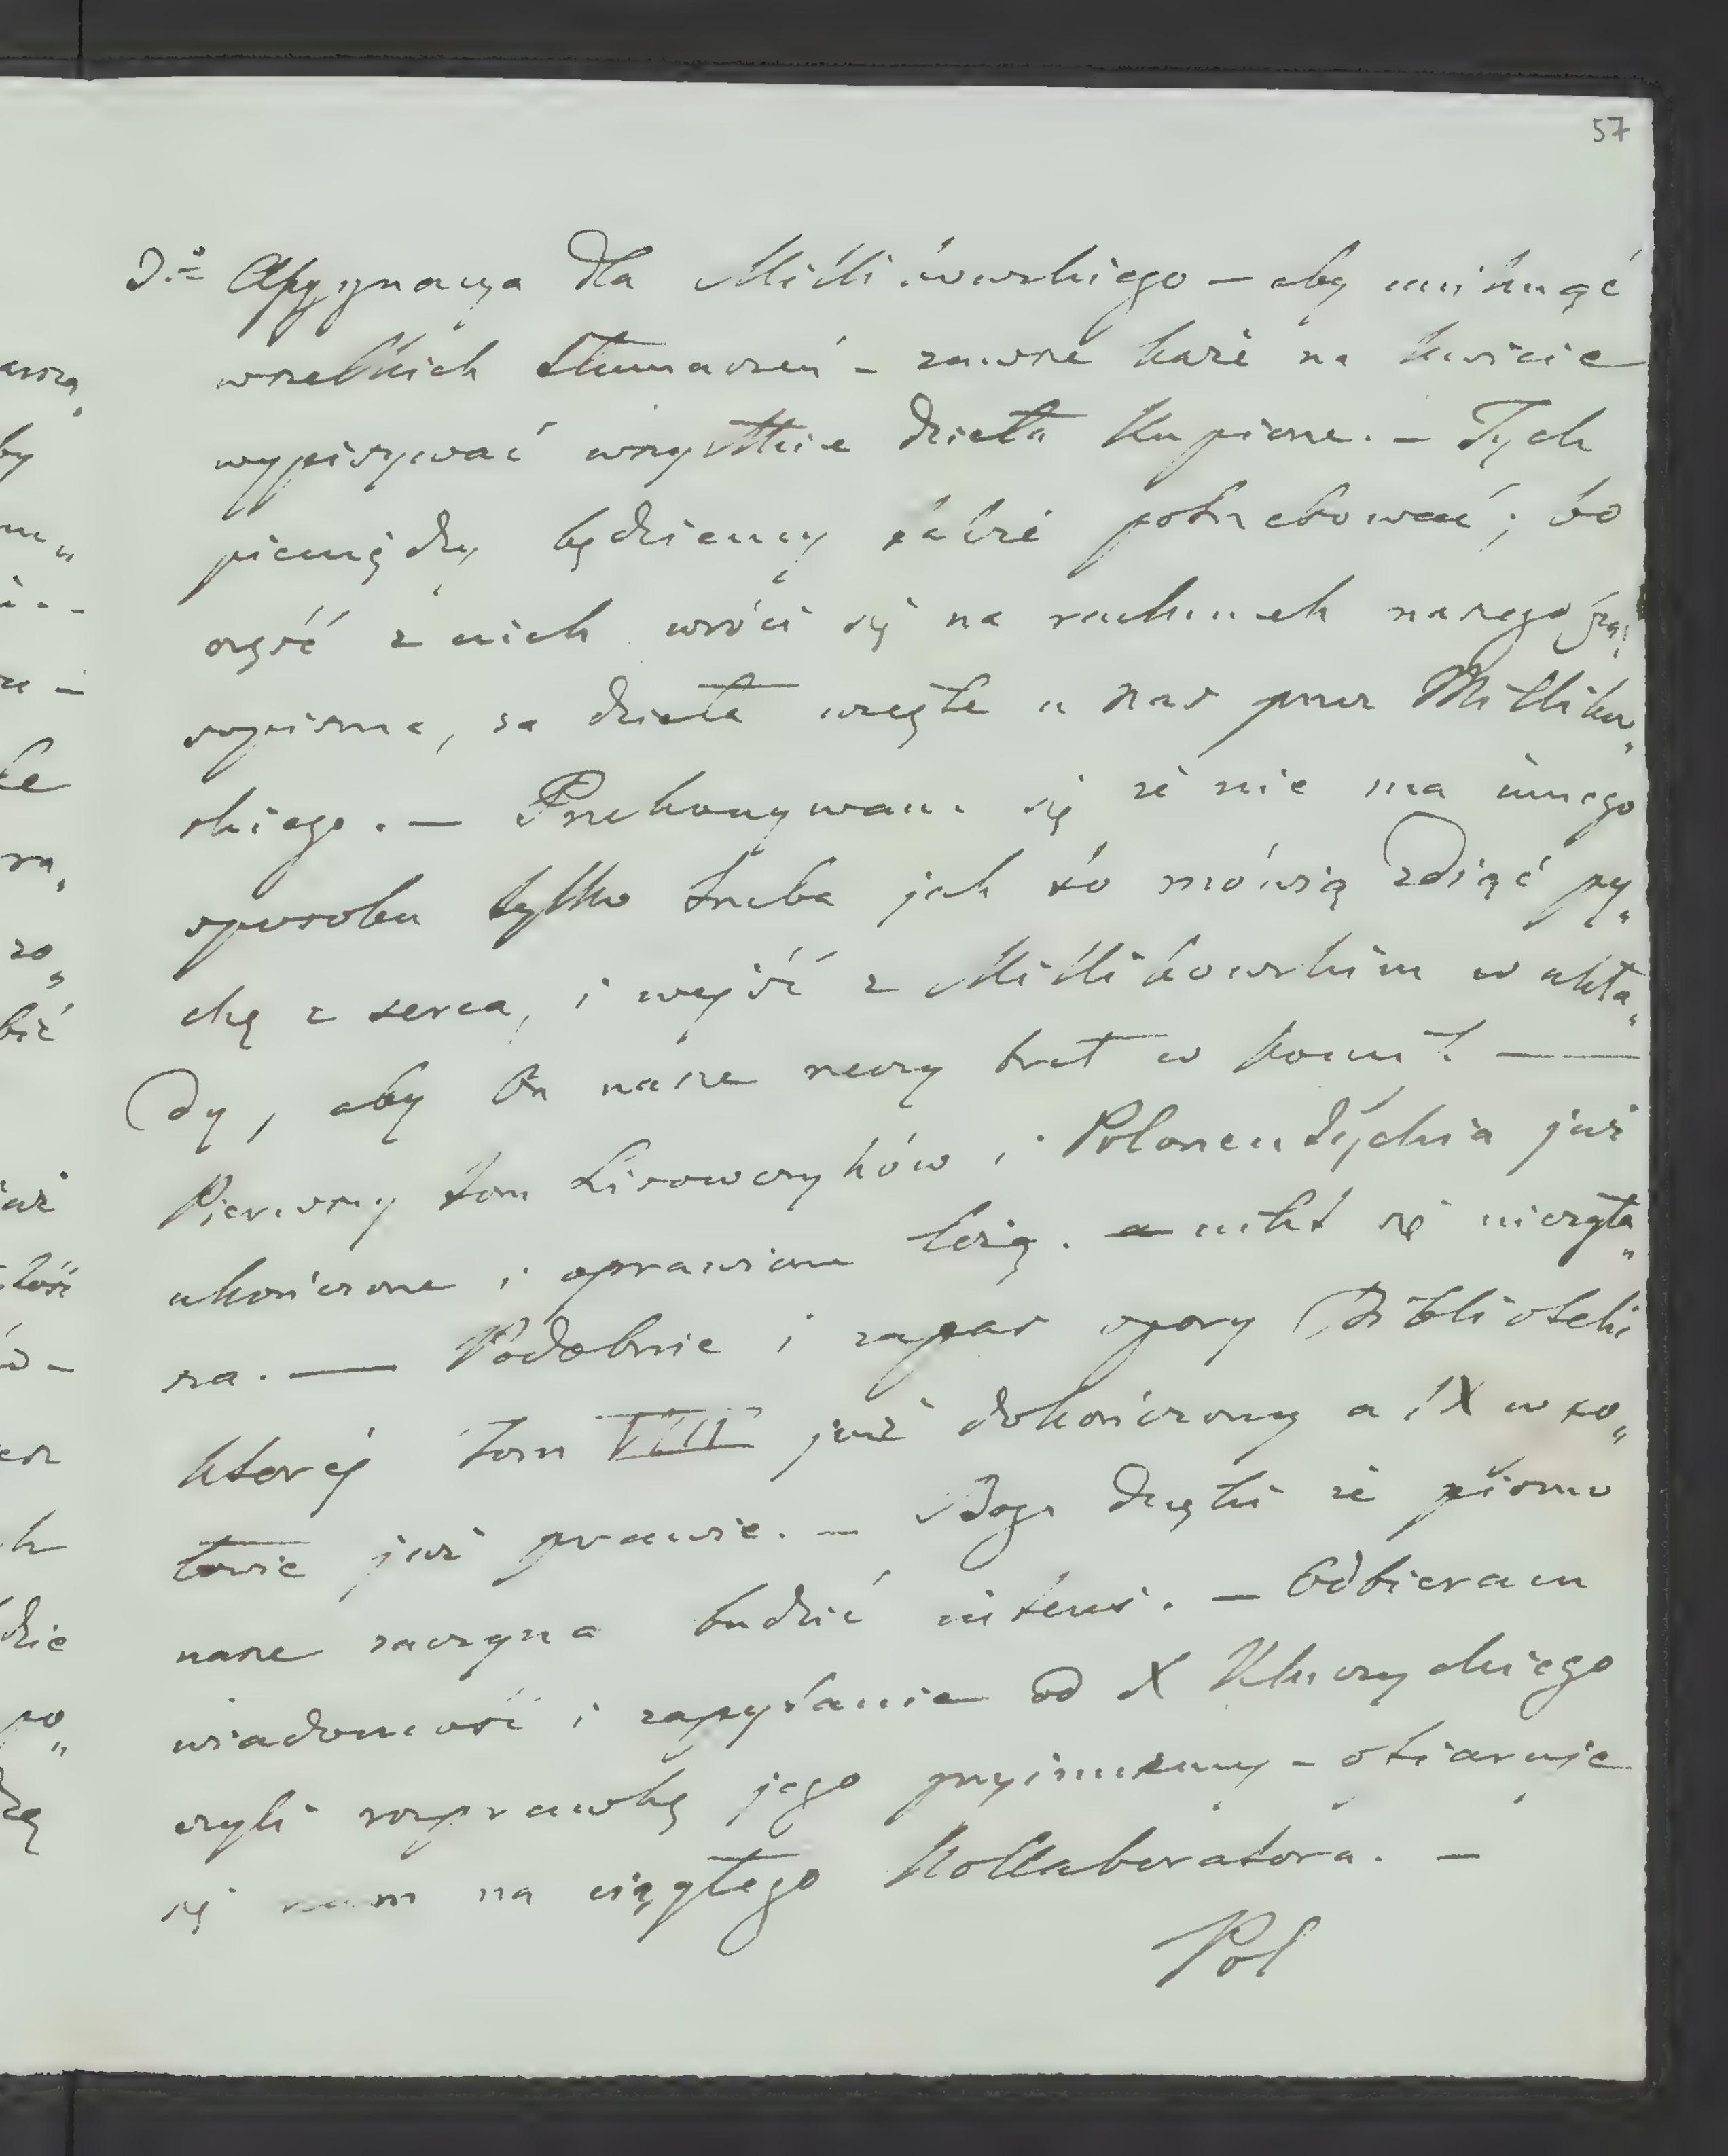 57
3.º Assygnacya dla Milikowskiego – aby uniknąć
wszelkich tłumaczeń – zawsze każ na kwicie
wypisywać wszystkie dzieła kupione. – Tych
pieniędzy będziemy także potrzebować; bo
część z nich wróci się na rachunek naszego cza„
sopisma, za dzieła wzięte u nas przez Millikow„
skiego. – Przekonywam się że nie ma innego
sposobu tylko trzeba jak to mówią zdiąć py„
chę z serca, i wejść z Milikowskim w ukła„
dy, aby On nasze rzeczy brał w komis. —
Pierwszy tom Lisowczyków i Poloneutychia już
ukończone i oprawione leżą. a nikt się niezgła„
sza. — Podobnie i zapas spory Biblioteki
której tom VIII już dokończony a IX w po„
łowie już prawie. – Bogu dzięki że pismo
nasze zaczyna budzić interes. – Odbieram
wiadomość i zapytanie od X Kluczyckiego
czyli rozprawkę jego przyimiemy – ofiaruje
się nam na ciągłego Kollaboratora. –
Pol